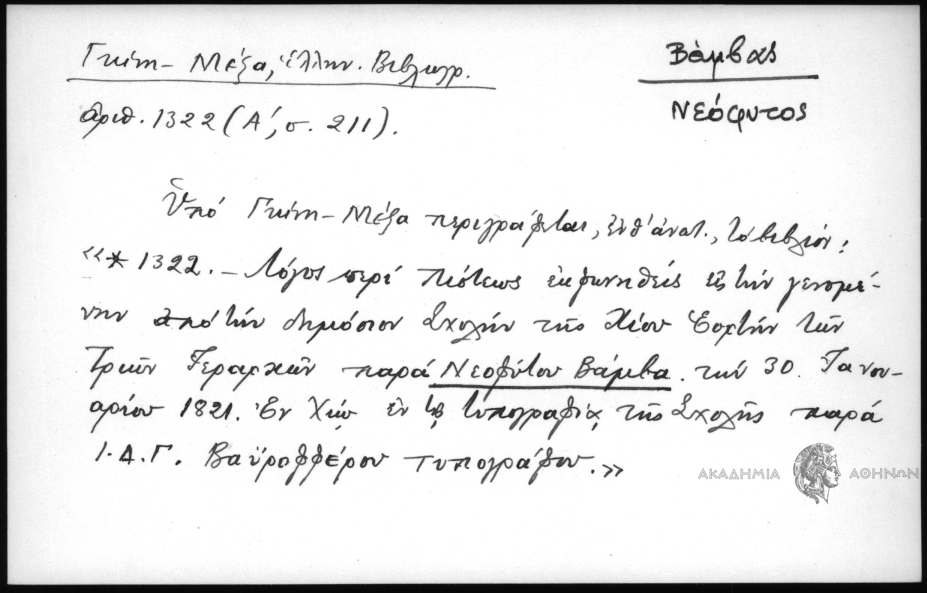 Γκίνη - Μέξα, Ἑλλην. Βιβλιογρ.
Βάμβας
Νεόφυτος
ἀριθ. 1322 (Α΄, σ. 211).
Ὑπό Γκίνη - Μέξα περιγράφεται, ἐνθ' ἀνωτ., τό βιβλίον:
«* 1322. - Λόγος περί πίστεως ἐκφωνηθείς εἰς τήν γενομέ-
νην ἀπό τήν δημόσιον Σχολήν τῆς Χίου Ἑορτήν τῶν
Τριῶν Ἱεραρχῶν παρά Νεοφύτου Βάμβα. τήν 30. Ἰανου-
αρίου 1821. Ἐν Χίῳ ἐν τῇ τυπογραφίᾳ τῆς Σχολῆς παρά
Ι.Δ.Γ. Βαϋροφφέρου τυπογράφου.»
ΑΚΑΔΗΜΙΑ ΑΘΗΝΩΝ